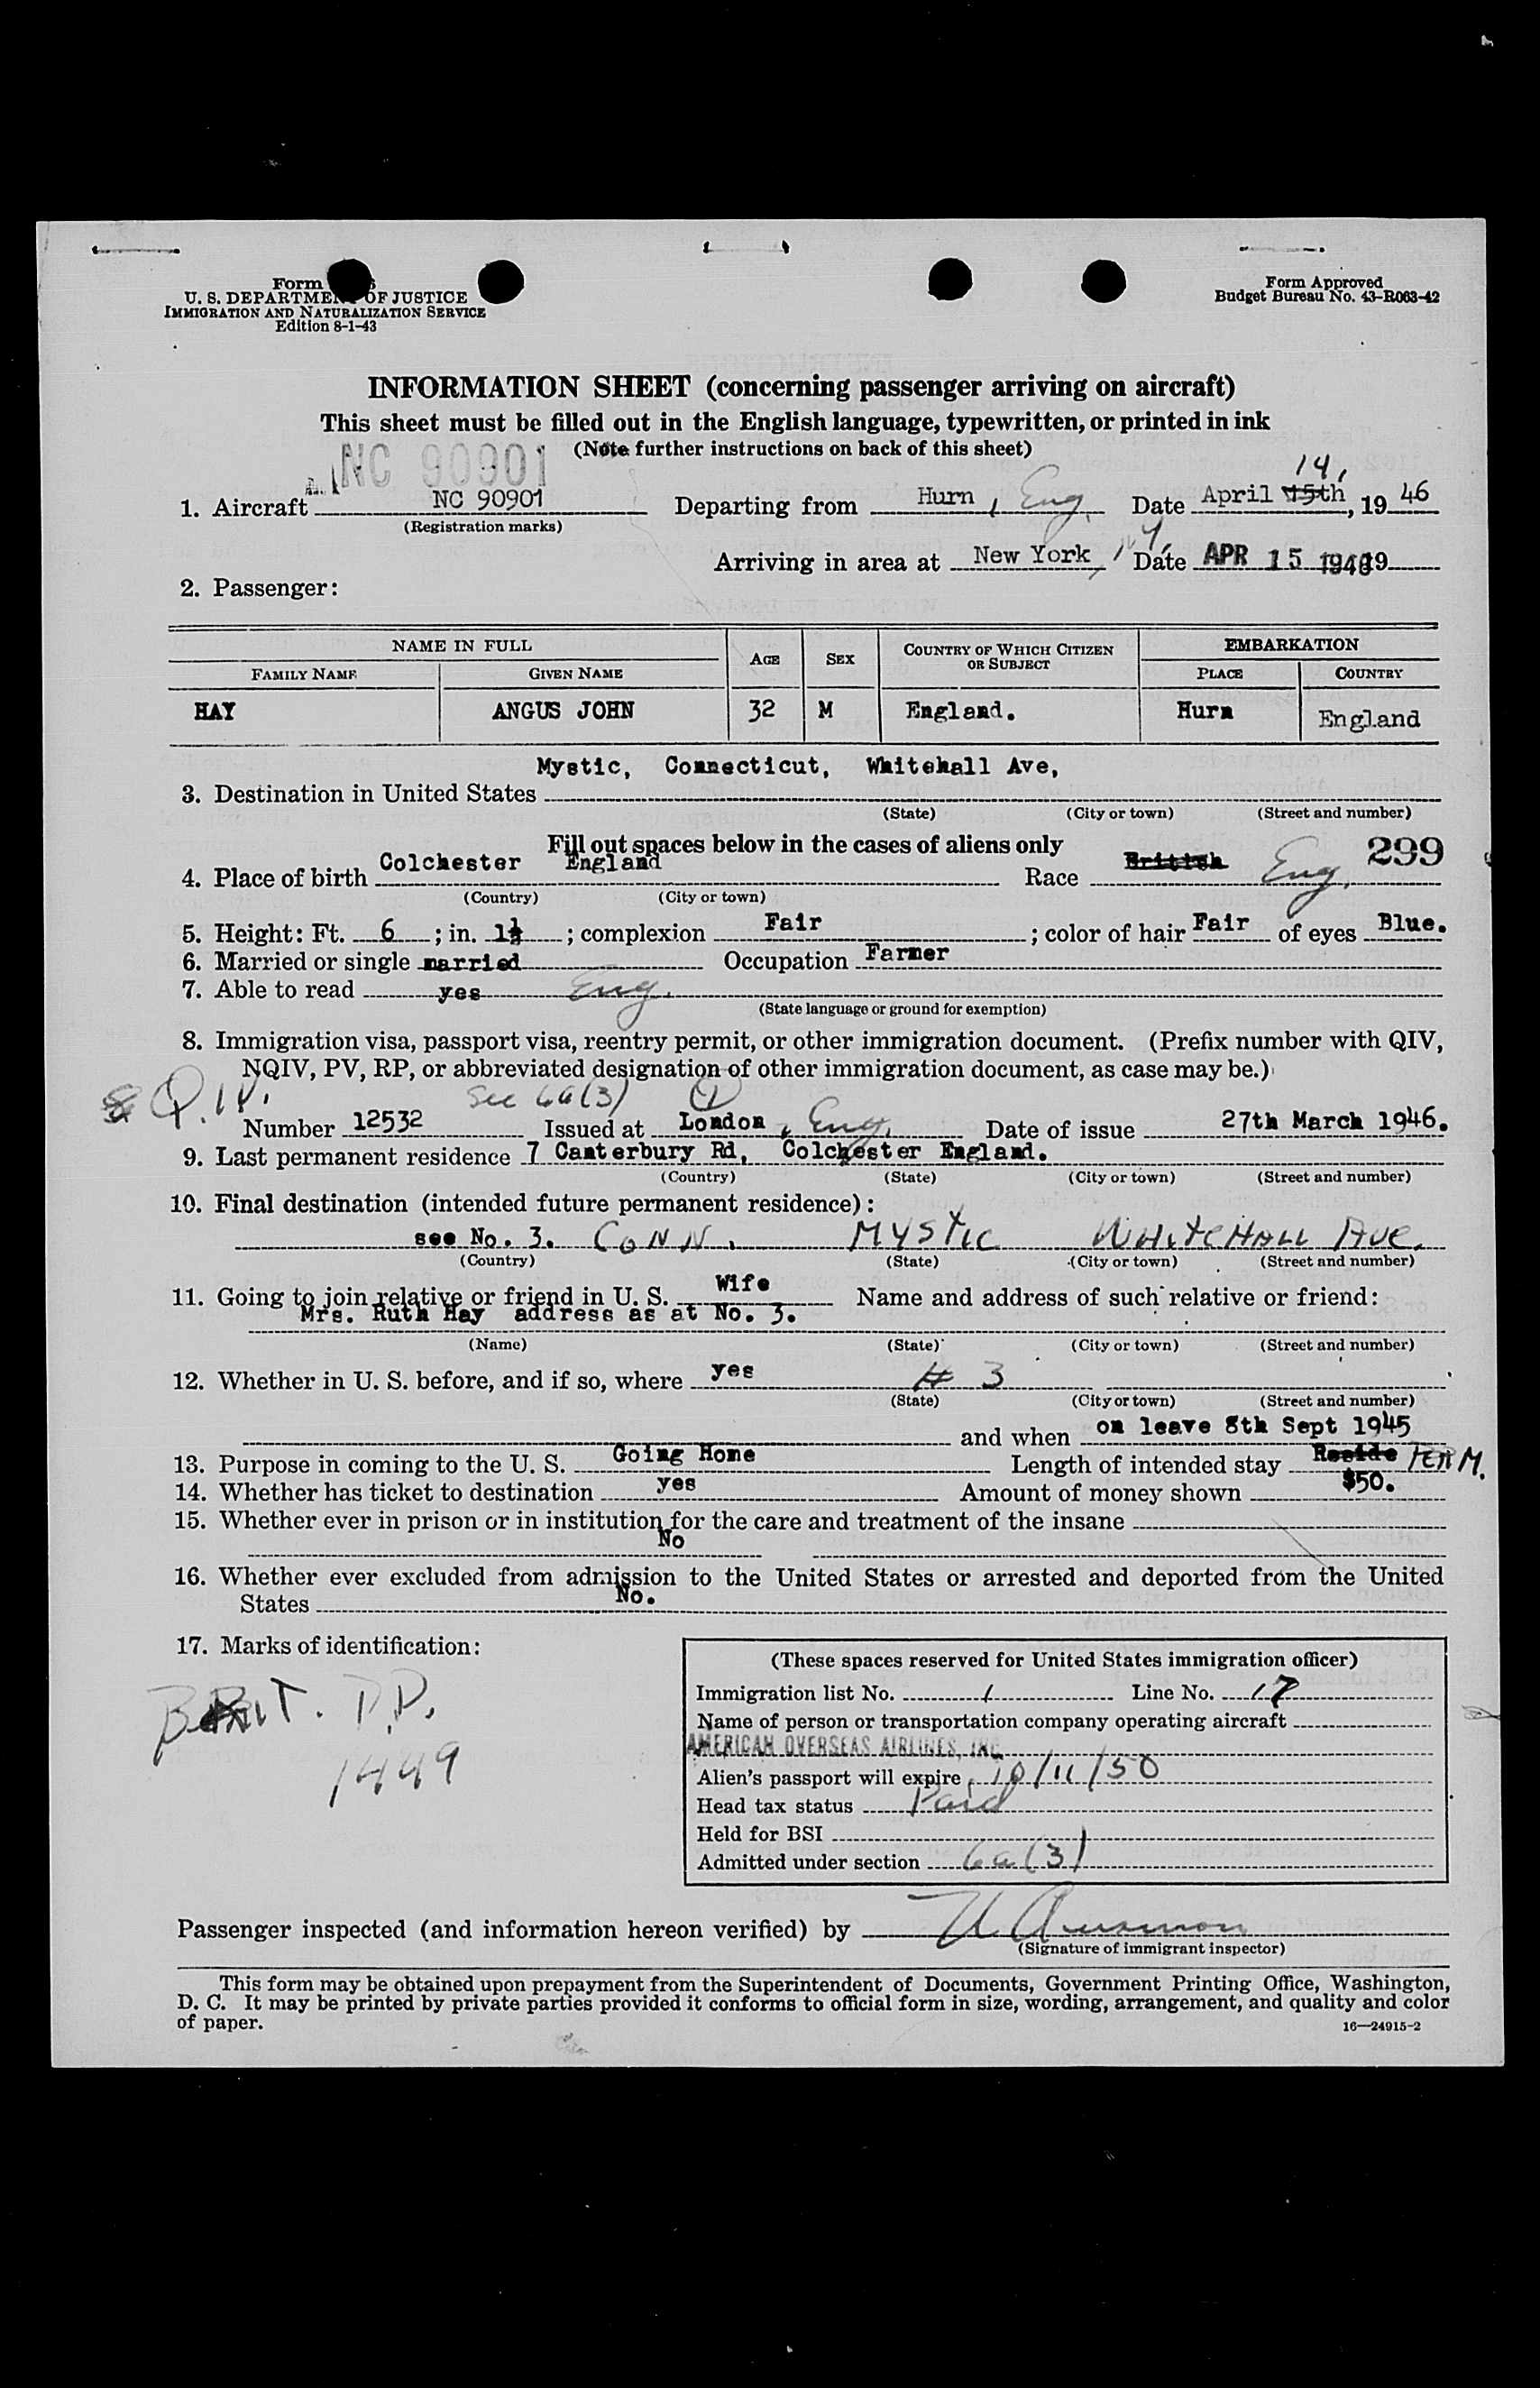 Form
U. S. DEPARTMENT OF JUSTICE
IMMIGRATION AND NATURALIZATION SERVICE
Edition 8-1-43
Form Approved
Budget Bureau No. 43-R063-42
INFORMATION SHEET (concerning passenger arriving on aircraft)
This sheet must be filled out in the English language, typewritten, or printed in ink
(Note further instructions on back of this sheet)
NC 90901
14,
1. Aircraft NC 90901 Departing from Hurn, Eng. Date April 15th, 19 46
(Registration marks)
Arriving in area at New York, N.Y. Date APR 15 1946 19
2. Passenger:
NAME IN FULL AGE SEX COUNTRY OF WHICH CITIZEN OR SUBJECT EMBARKATION
FAMILY NAME GIVEN NAME PLACE COUNTRY
HAY ANGUS JOHN 32 M England. Hurn England
Mystic, Connecticut, Whitehall Ave,
3. Destination in United States
(State) (City or town) (Street and number)
Fill out spaces below in the cases of aliens only
299
4. Place of birth Colchester England Race British Eng.
(Country) (City or town)
5. Height: Ft. 6; in. 1½; complexion Fair; color of hair Fair of eyes Blue.
6. Married or single married Occupation Farmer
7. Able to read yes Eng.
(State language or ground for exemption)
8. Immigration visa, passport visa, reentry permit, or other immigration document. (Prefix number with QIV,
NQIV, PV, RP, or abbreviated designation of other immigration document, as case may be.)
Q.IV. Sec 6a(3)
Number 12532 Issued at London, Eng. Date of issue 27th March 1946.
9. Last permanent residence 7 Canterbury Rd, Colchester England.
(Country) (State) (City or town) (Street and number)
10. Final destination (intended future permanent residence):
see No. 3. CONN. MYSTIC WHITEHALL AVE.
(Country) (State) (City or town) (Street and number)
11. Going to join relative or friend in U. S. Wife Name and address of such relative or friend:
Mrs. Ruth Hay address as at No. 3.
(Name) (State) (City or town) (Street and number)
12. Whether in U. S. before, and if so, where yes # 3
(State) (City or town) (Street and number)
and when on leave 8th Sept 1945
13. Purpose in coming to the U. S. Going Home Length of intended stay Reside PERM.
14. Whether has ticket to destination yes Amount of money shown $50.
15. Whether ever in prison or in institution for the care and treatment of the insane
No
16. Whether ever excluded from admission to the United States or arrested and deported from the United
States No.
17. Marks of identification:
BRIT. P.P.
1449
(These spaces reserved for United States immigration officer)
Immigration list No. 1 Line No. 17
Name of person or transportation company operating aircraft
AMERICAN OVERSEAS AIRLINES, INC.
Alien's passport will expire 10/11/50
Head tax status Paid
Held for BSI
Admitted under section 6a(3)
Passenger inspected (and information hereon verified) by
(Signature of immigrant inspector)
This form may be obtained upon prepayment from the Superintendent of Documents, Government Printing Office, Washington,
D. C. It may be printed by private parties provided it conforms to official form in size, wording, arrangement, and quality and color
of paper.
16—24915-2